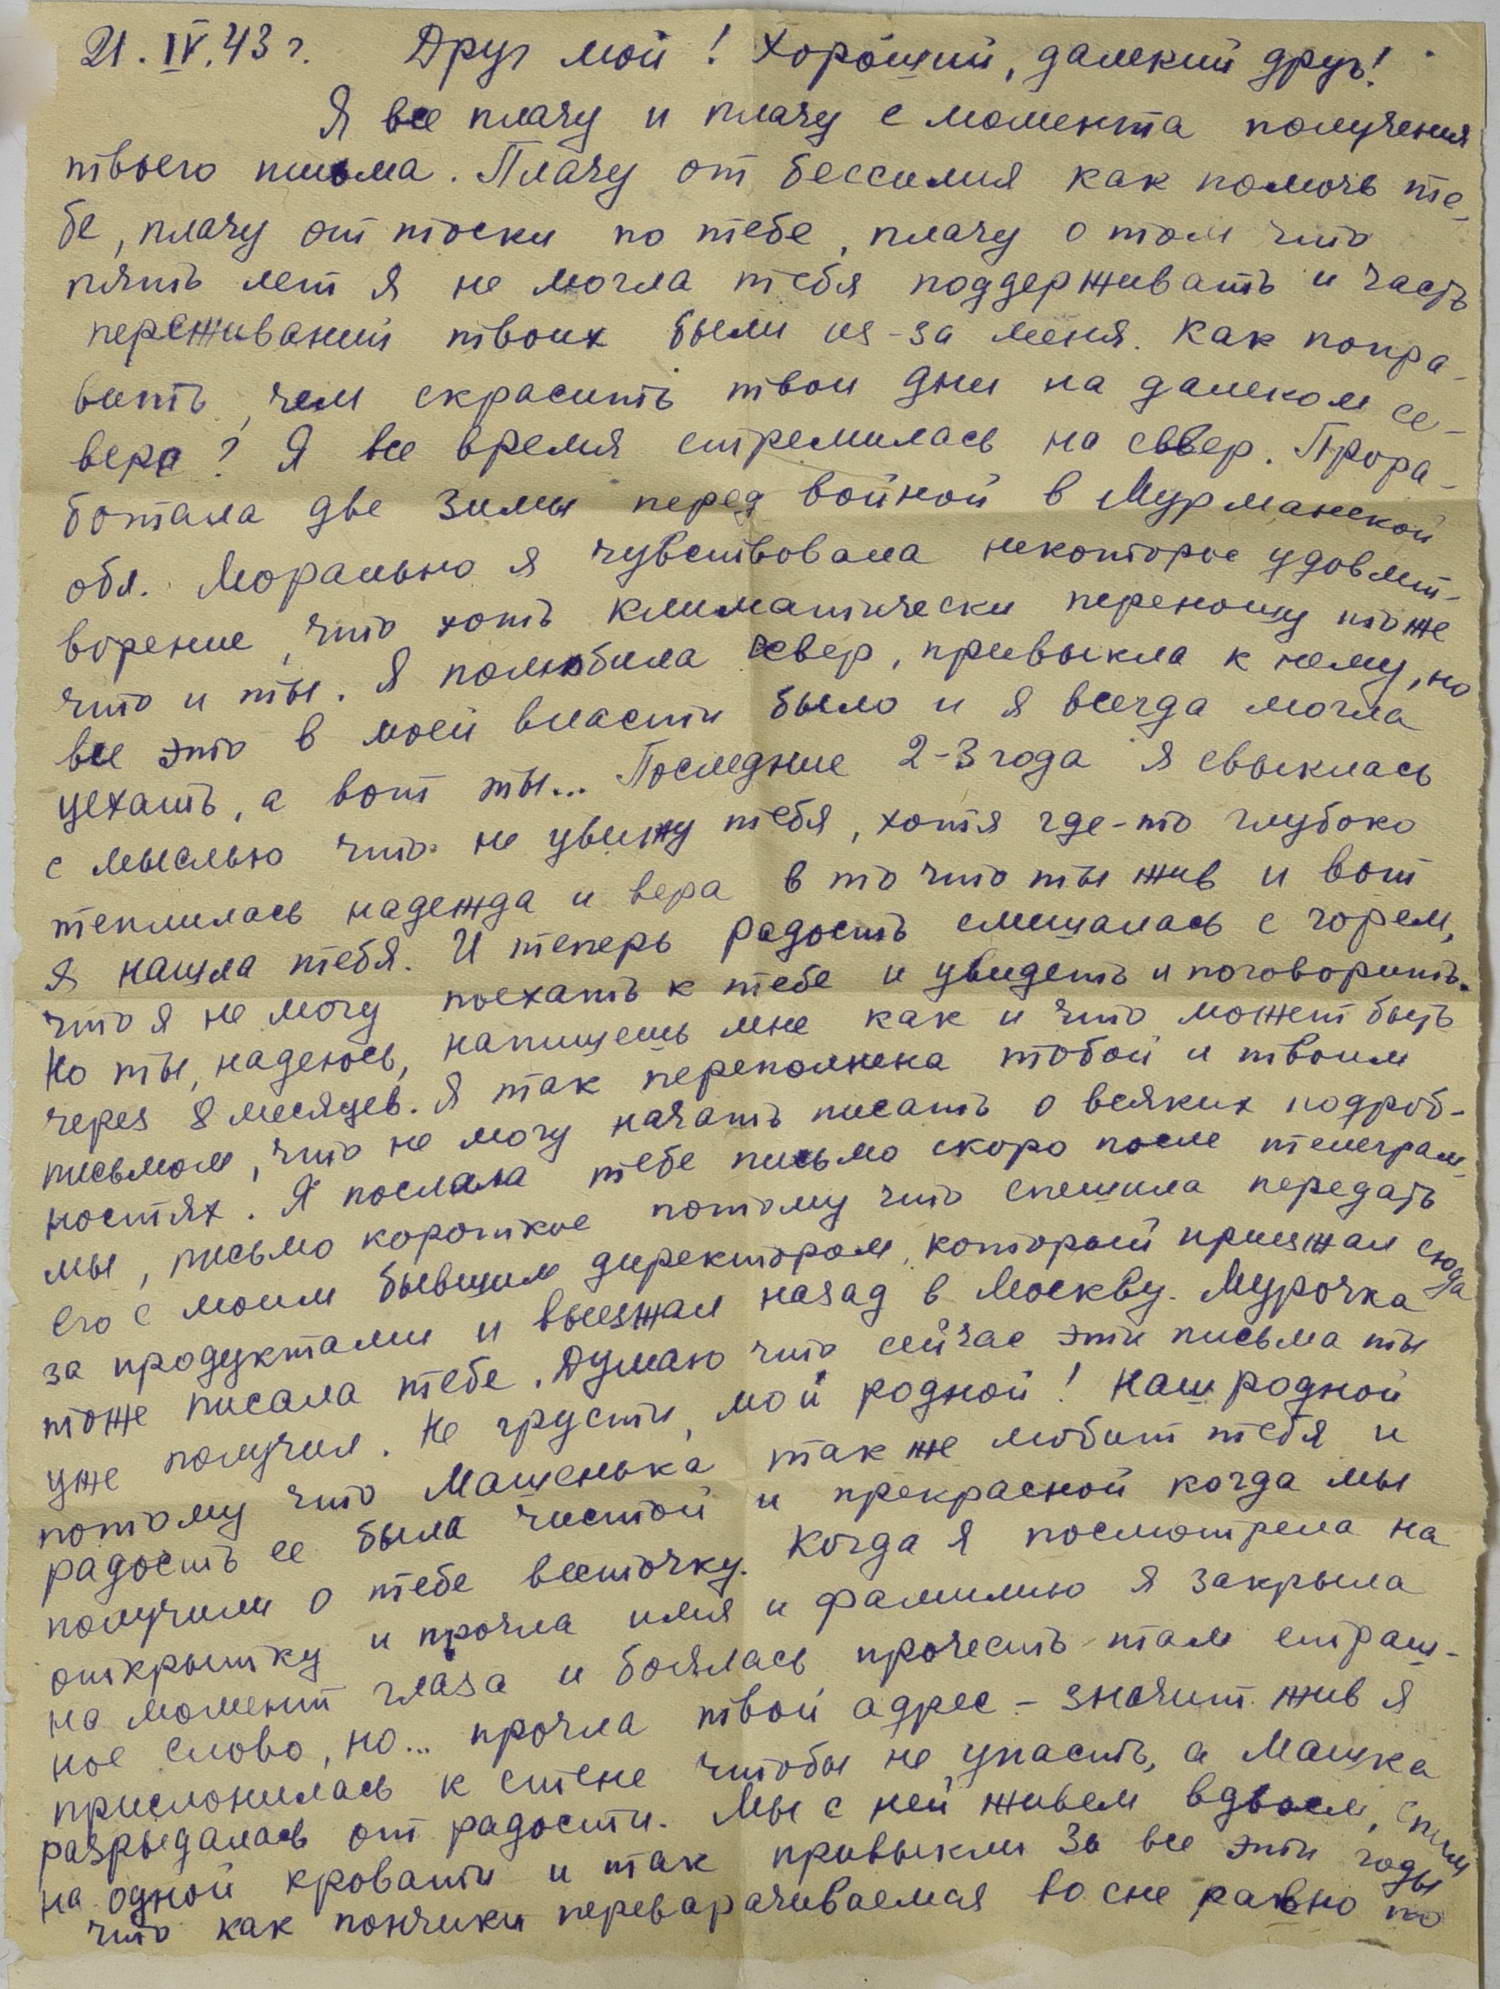 21.IV.43 г. Друг мой! Хороший, далекий друг!
Я все плачу и плачу с момента получения
твоего письма. Плачу от бессилия как помочь те-
бе, плачу от тоски по тебе, плачу о том что
пять лет я не могла тебя поддерживать и часть
переживаний твоих были из-за меня. Как попра-
вить, чем скрасить твои дни на далеком се-
вере? Я все время стремилась на север. Прора-
ботала две зимы перед войной в Мурманской
обл. Морально я чувствовала некоторое удовлет-
ворение, что хоть климатически переношу тоже
что и ты. Я полюбила север, привыкла к нему, но
все это в моей власти было и я всегда могла
уехать, а вот ты... Последние 2-3 года я свыклась
с мыслью что не увижу тебя, хотя где-то глубоко
теплилась надежда и вера в то что ты жив и вот
я нашла тебя. И теперь радость смешалась с горем,
что я не могу поехать к тебе и увидеть и поговорить.
Но ты, надеюсь, напишешь мне как и что может быть
через 8 месяцев. Я так переполнена тобой и твоим
письмом, что не могу начать писать о всяких подроб-
ностях. Я послала тебе письмо скоро после телеграм-
мы, письмо короткое потому что спешила передать
его с моим бывшим директором, который приезжал сюда
за продуктами и выезжал назад в Москву. Мурочка
тоже писала тебе. Думаю что сейчас эти письма ты
уже получил. Не грусти, мой родной! Наш родной
потому что Машенька так же любит тебя и
радость ее была чистой и прекрасной когда мы
получили о тебе весточку. Когда я посмотрела на
открытку и прочла имя и фамилию я закрыла
на момент глаза и боялась прочесть там страш-
ное слово, но... прочла твой адрес - значит жив я
прислонилась к стене чтобы не упасть, а Машка
разрыдалась от радости. Мы с ней живем вдвоем, спим
на одной кровати и так привыкли за все эти годы
что как пончики переворачиваемся во сне равно по